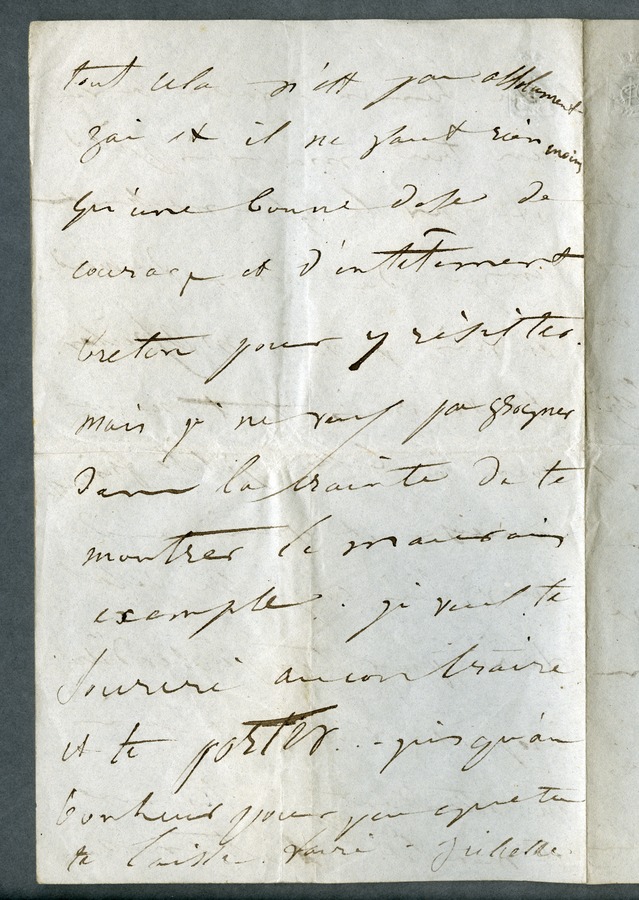 tout cela n'est pas absolument
gai et il ne faut rien moins
qu'une bonne dose de
courage et d'entêtement
breton pour y résister.
mais je ne veux pas grogner
dans la crainte de te
montrer le mauvais
exemple. je veux te
sourire au contraire
et te porter... jusqu'au
bonheur pour peu que tu
te laisse faire - Juliette.